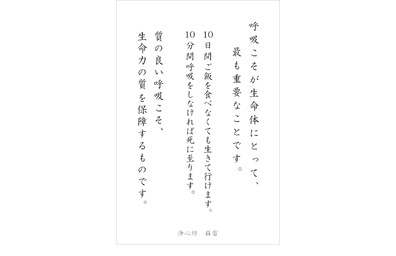 呼吸こそが生命体にとって、
最も重要なことです。
10日間ご飯を食べなくても生きて行けます。
10分間呼吸をしなければ死に至ります。
質の良い呼吸こそ、
生命力の質を保障するものです。
浄心坊